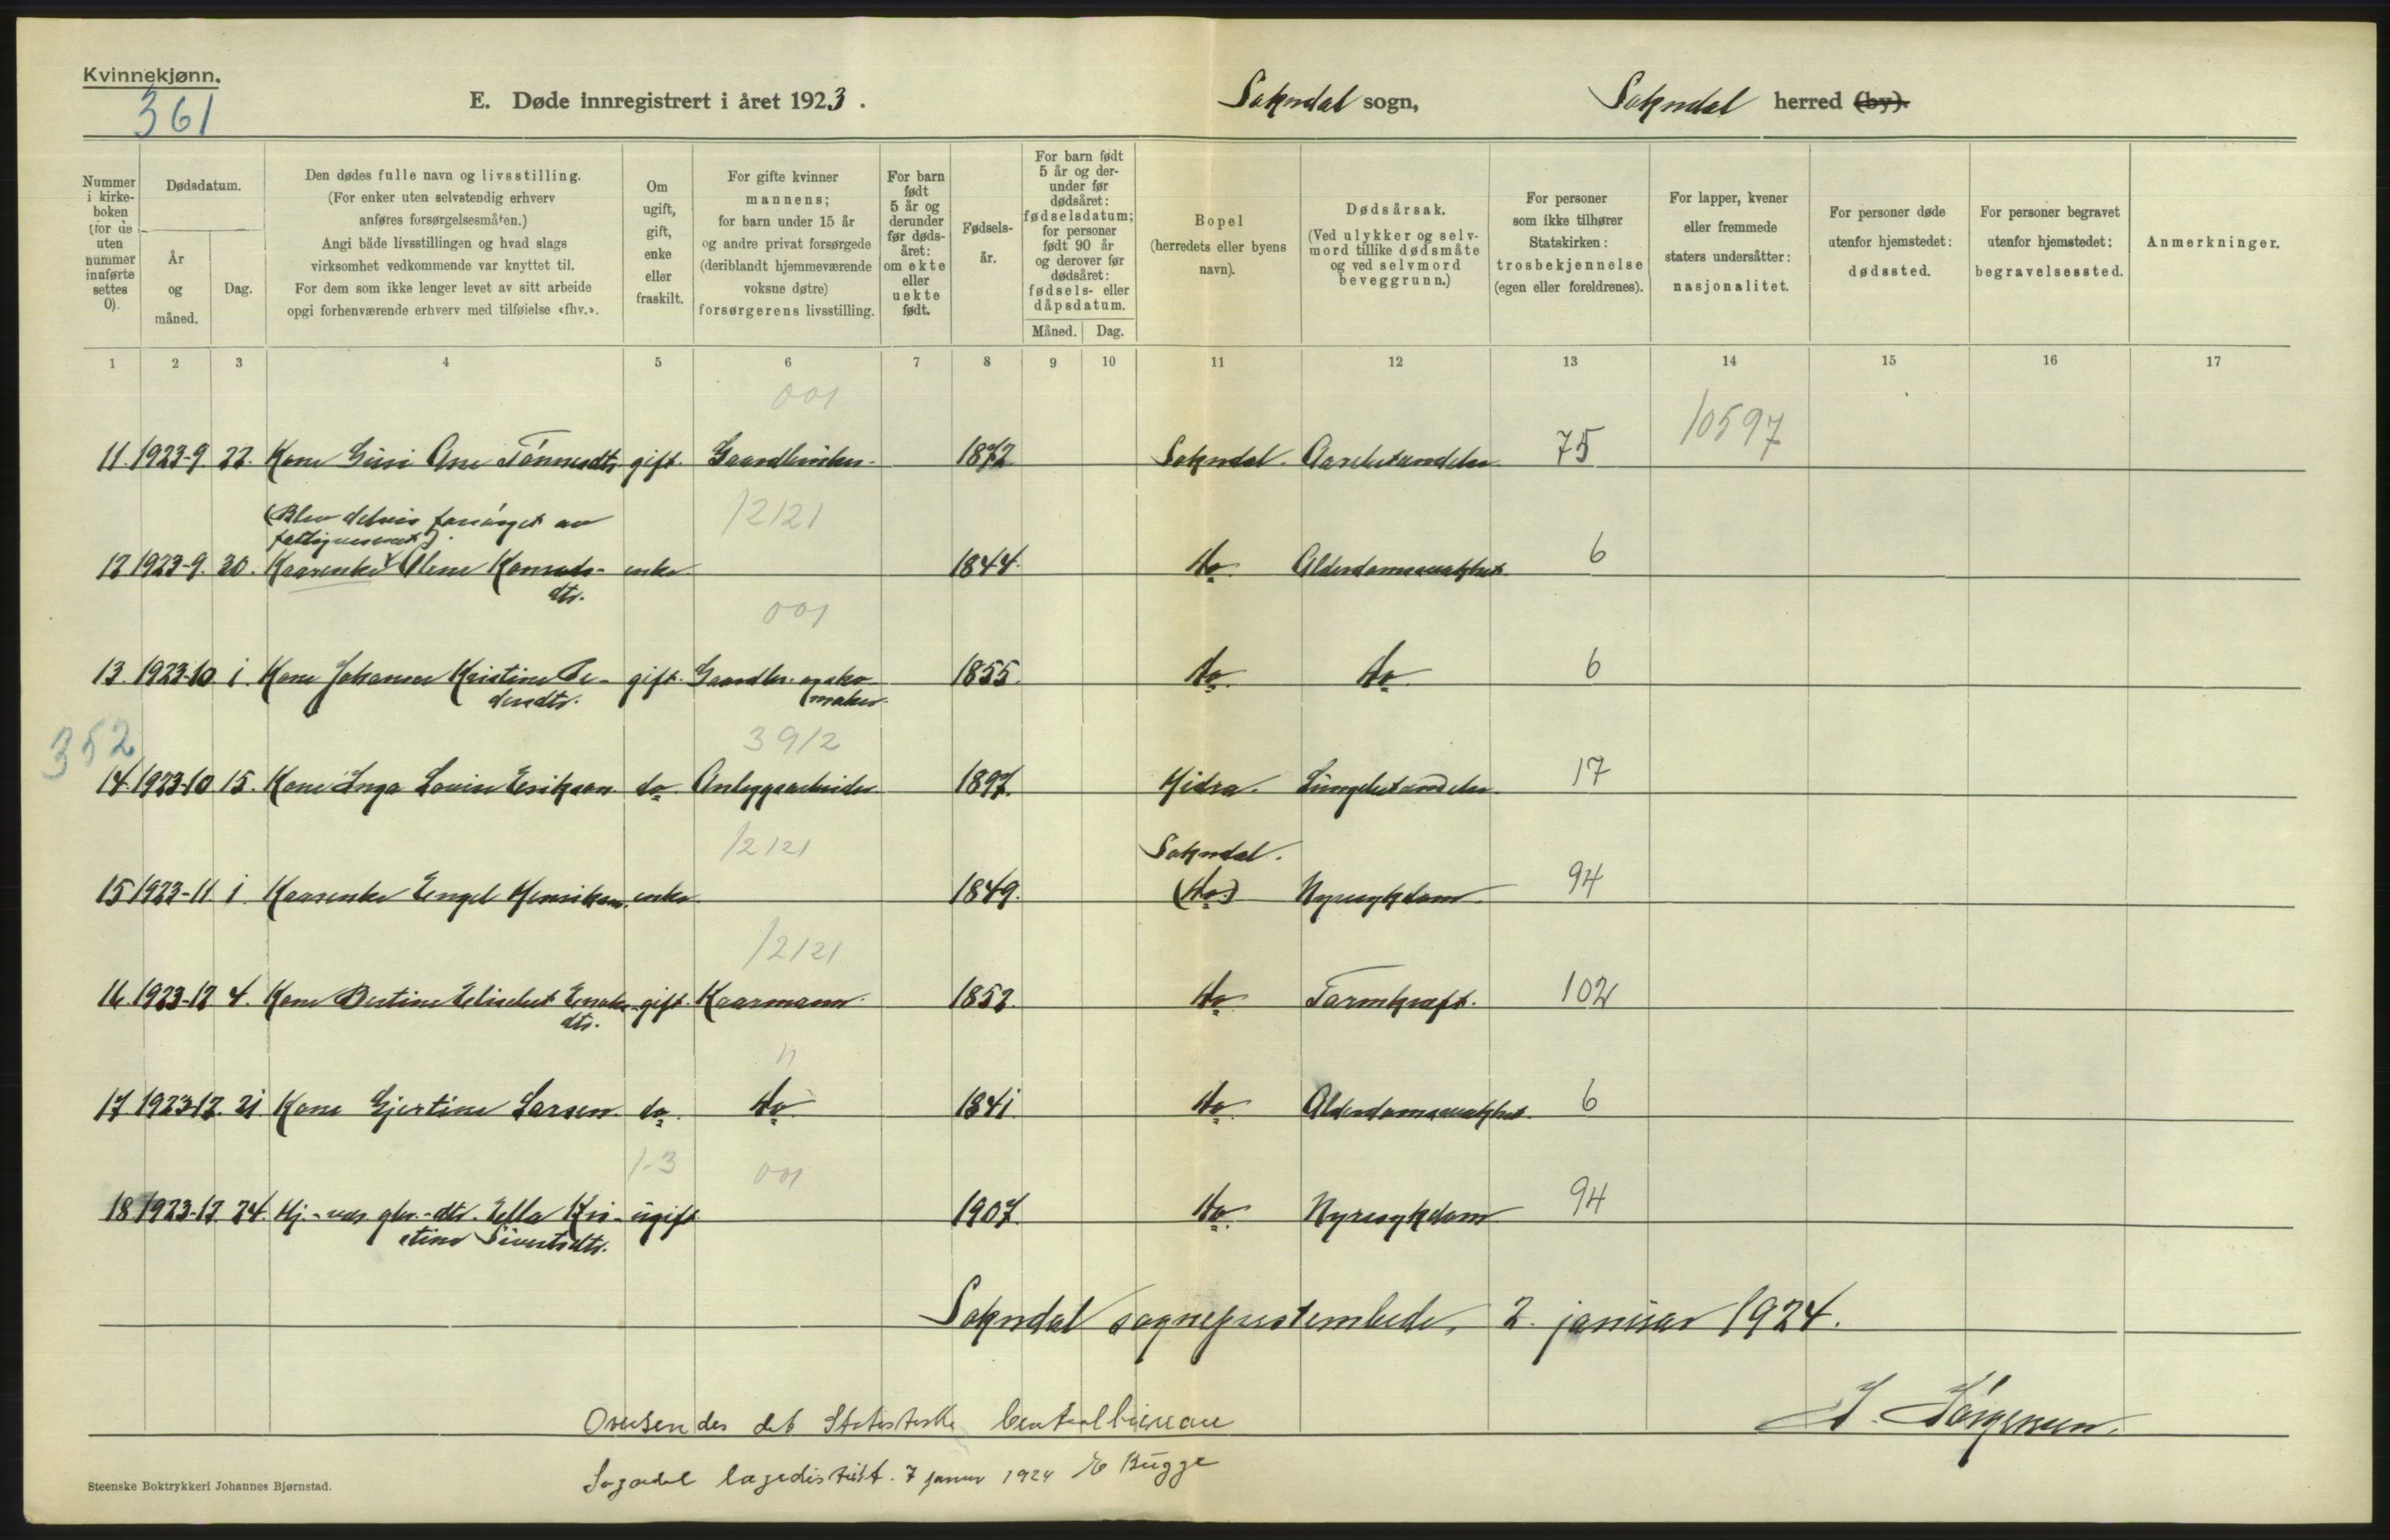 Kvinnekjønn.
361
E. Døde innregistrert i året 1923.
Sokndal sogn,
Sokndal herred (by).
Nummer i kirkeboken (for de uten nummer innførte settes 0).
Dødsdatum.
År og måned.
Dag.
Den dødes fulle navn og livsstilling.
(For enker uten selvstendig erhverv
anføres forsørgelsesmåten.)
Angi både livsstillingen og hvad slags
virksomhet vedkommende var knyttet til.
For dem som ikke lenger levet av sitt arbeide
opgi forhenværende erhverv med tilføielse «fhv.».
Om ugift, gift, enke eller fraskilt.
For gifte kvinner
mannens;
for barn under 15 år
og andre privat forsørgede
(deriblandt hjemmeværende
voksne døtre)
forsørgerens livsstilling.
For barn født 5 år og derunder før dødsåret: om ekte eller uekte født.
Fødselsår.
For barn født 5 år og derunder før dødsåret: fødselsdatum; for personer født 90 år og derover før dødsåret: fødsels- eller dåpsdatum.
Måned. Dag.
Bopel
(herredets eller byens
navn).
Dødsårsak.
(Ved ulykker og selvmord tillike dødsmåte
og ved selvmord
beveggrunn.)
For personer
som ikke tilhører
Statskirken:
trosbekjennelse
(egen eller foreldrenes).
For lapper, kvener
eller fremmede
staters undersåtter:
nasjonalitet.
For personer døde
utenfor hjemstedet:
dødssted.
For personer begravet
utenfor hjemstedet:
begravelsessted.
Anmerkninger.
1 2 3 4 5 6 7 8 9 10 11 12 13 14 15 16 17
001
10597
11. 1923-9. 22. Kone Guri Ane Tönnesdtr. gift. Gaardbruker. 1872 Sokndal. 75
(Blev delvis forsörget av
fattigvesenet).
12121
12 1923-9. 30. Kaarenke Olene Konrads- enke 1844. do. Alderdomssvakhet. 6
dtr.
001
13. 1923-10. 1. Kone Johanne Kristine Pe- gift. Gaardbr. og sko- 1855. do. do. 6
dersdtr. maker.
352
3912
14. 1923-10 15. Kone Inga Lovise Erikson do. Anleggsarbeider 1897. Hidra. Lungebetændelse. 17
12121
Sokndal.
15 1923-11. 1. Kaarenke Engel Henriksen. enke. 1849. (do.) Nyresykdom. 94
12121
16. 1923-12 4. Kone Bertine Elisebet gift. Kaarmann. 1852. do. Tarmkræft. 102
dtr.
"
17 1923-12. 21. Kone Gjertine Larsen do. do. 1841. do. Alderdomssvakhet. 6
1-3
001
18 1923-12. 24. Hj.-vær. gbr.-dtr. Ella Kri- ugift 1907. do. Nyresykdom 94
stine Sivertsdtr.
Sokndal sogneprestembede, 2. januar 1924.
J. Jörgensen.
Oversendes det Statistiske Centralbureau
Sogndal lægedistrikt. 7 januar 1924 Bugge
Steenske Boktrykkeri Johannes Bjørnstad.